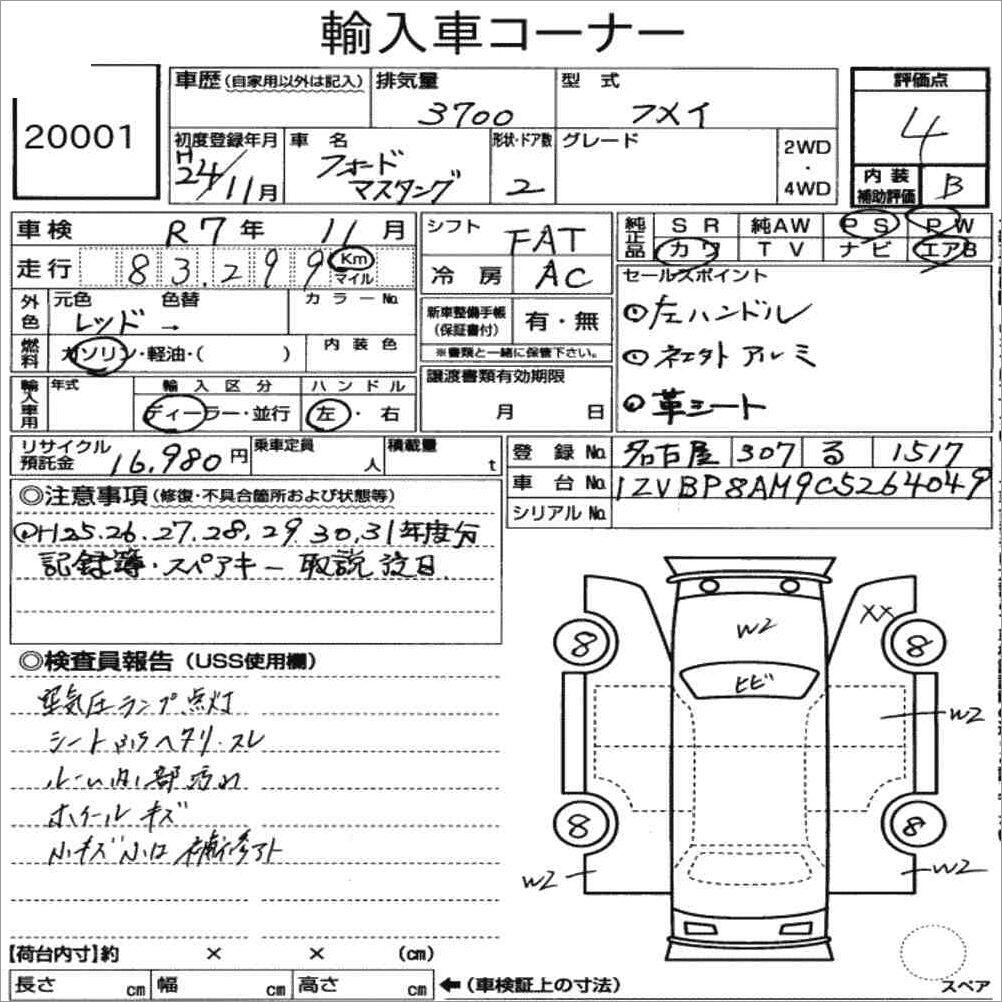 輸入車コーナー
20001
車歴(自家用以外は記入) 排気量 3700 型式 フメイ 評価点 4
初度登録年月 H24/11月 車名 フォード マスタング 形状・ドア数 2 グレード 2WD・4WD 内装補助評価 B
車検 R7年 11月 シフト FAT 純正品 SR 純AW PS PW
走行 83,299 Km マイル 冷房 AC カワ TV ナビ エアB
外色 元色 レッド → 色替 カラーNo. 新車整備手帳(保証書付) 有・無 セールスポイント
※書類と一緒に保管下さい。
◎左ハンドル
燃料 ガソリン・軽油・( ) 内装色
◎社外アルミ
輸入車用 年式 輸入区分 ディーラー・並行 ハンドル 左・右 譲渡書類有効期限 月 日
◎革シート
リサイクル預託金 16,980円 乗車定員 人 積載量 t
登録No. 名古屋 307 る 1517
車台No. 1ZVBP8AM9C5264049
シリアルNo.
◎注意事項(修復・不具合箇所および状態等)
◎H25.26.27.28.29.30.31年度分
記録簿・スペアキー 取説
◎検査員報告(USS使用欄)
空気圧ランプ点灯
シート ヘタリ・スレ
ルーム内 内部汚れ
ホイールキズ
小キズ小凹 補修アト
W2
ヒビ
XX
8
8
8
8
W2
W2
W2
【荷台内寸】約 × × (cm)
長さ cm 幅 cm 高さ cm ←(車検証上の寸法)
スペア